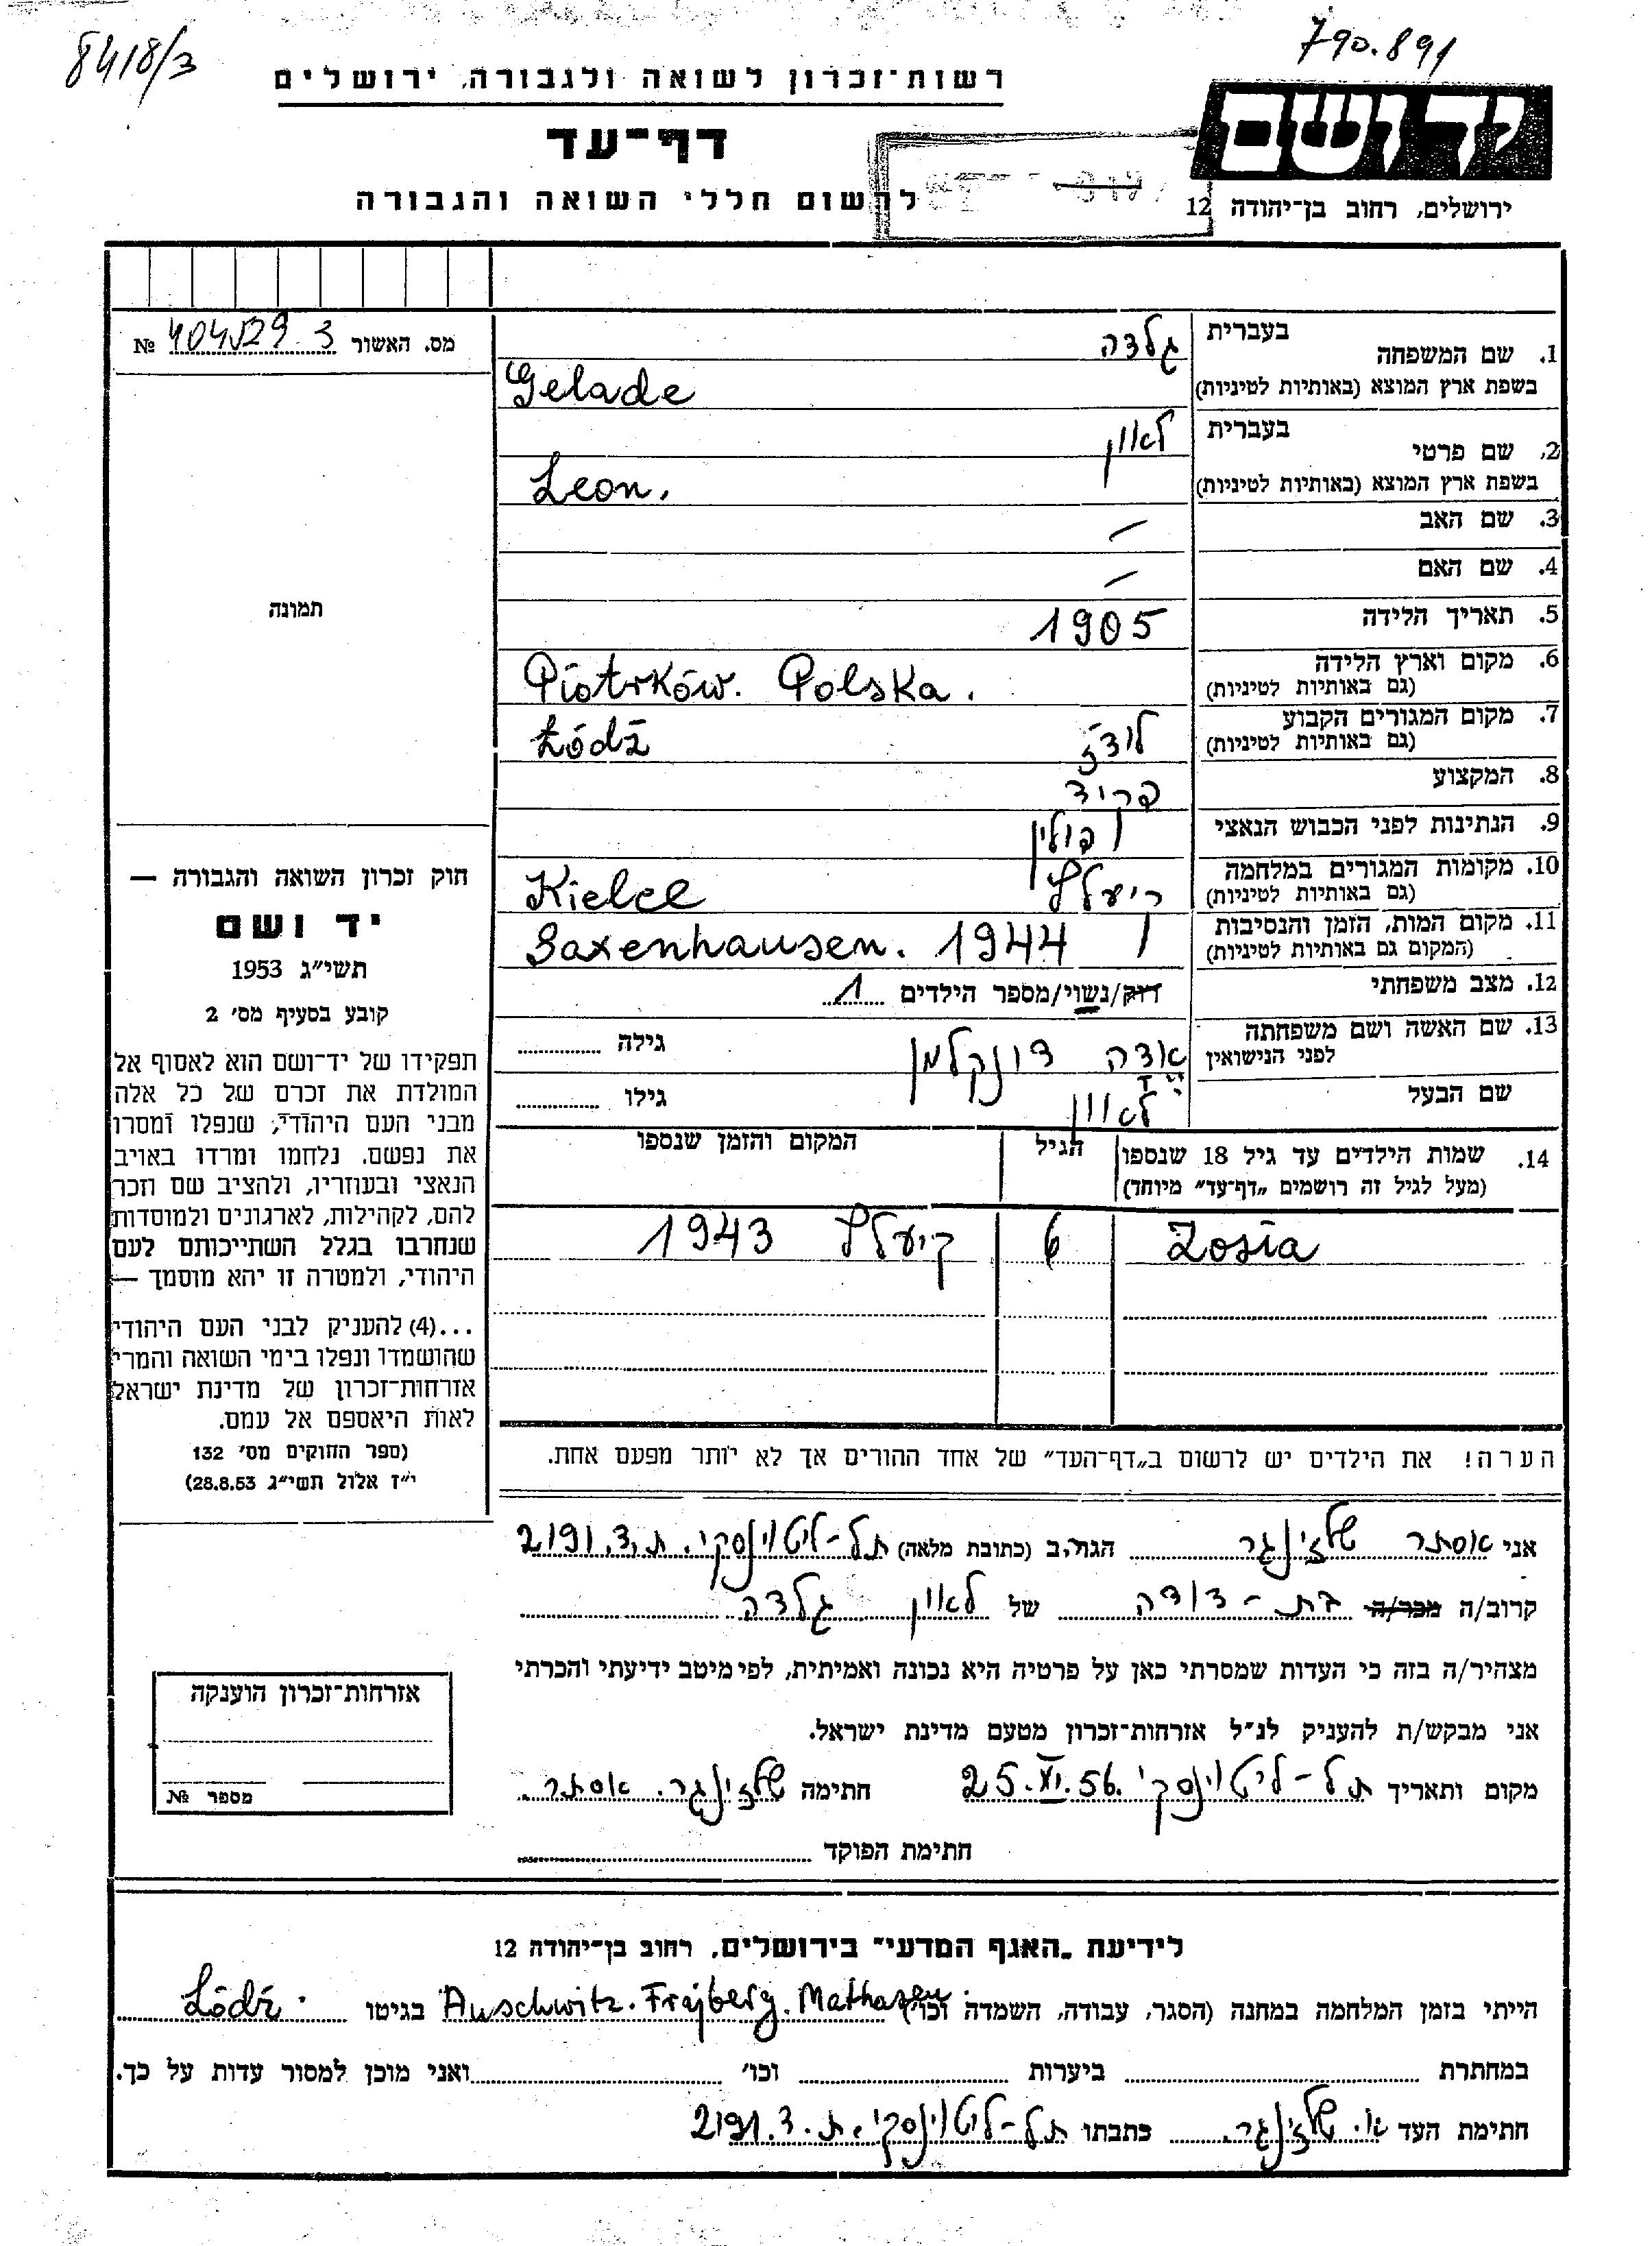 8418/3
790.891
רשות־זכרון לשואה ולגבורה, ירושלים
יד ושם
דף־עד
לרשום חללי השואה והגבורה
ירושלים, רחוב בן־יהודה 12
מס. האשור 404529 3 №
1. שם המשפחה
בעברית גלדה
בשפת ארץ המוצא (באותיות לטיניות) Gelade
2. שם פרטי
בעברית לאון
בשפת ארץ המוצא (באותיות לטיניות) Leon.
3. שם האב –
4. שם האם –
5. תאריך הלידה 1905
6. מקום וארץ הלידה (גם באותיות לטיניות) Piotrków. Polska.
7. מקום המגורים הקבוע (גם באותיות לטיניות) לודז Łódź
8. המקצוע
9. הנתינות לפני הכבוש הנאצי פולין
10. מקומות המגורים במלחמה (גם באותיות לטיניות) קיעלץ Kielce
11. מקום המות, הזמן והנסיבות (המקום גם באותיות לטיניות) Saxenhausen. 1944
12. מצב משפחתי רוק/נשוי/מספר הילדים 1
13. שם האשה ושם משפחתה לפני הנישואין אדה דונקלמן גילה
שם הבעל לאון גילו
14. שמות הילדים עד גיל 18 שנספו (מעל לגיל זה רושמים „דף־עד" מיוחד)
הגיל
המקום והזמן שנספו
Zosia 6 קיעלץ 1943
הערה! את הילדים יש לרשום ב„דף־העד" של אחד ההורים אך לא יותר מפעם אחת.
תמונה
חוק זכרון השואה והגבורה —
יד ושם
תשי״ג 1953
קובע בסעיף מס׳ 2
תפקידו של יד־ושם הוא לאסוף אל
המולדת את זכרם של כל אלה
מבני העם היהודי, שנפלו ומסרו
את נפשם, נלחמו ומרדו באויב
הנאצי ובעוזריו, ולהציב שם וזכר
להם, לקהילות, לארגונים ולמוסדות
שנחרבו בגלל השתייכותם לעם
היהודי, ולמטרה זו יהא מוסמך —
...(4) להעניק לבני העם היהודי
שהושמדו ונפלו בימי השואה והמרי
אזרחות־זכרון של מדינת ישראל
לאות היאספם אל עמם.
(ספר החוקים מס׳ 132
י״ז אלול תשי״ג 28.8.53)
אני אסתר שלזינגר הגור.ב (כתובת מלאה) תל-ליטוינסקי. ת.ד. 2191
קרוב/ה מכר/ה בת-דודה של לאון גלדה
מצהיר/ה בזה כי העדות שמסרתי כאן על פרטיה היא נכונה ואמיתית, לפי מיטב ידיעתי והכרתי
אני מבקש/ת להעניק לנ״ל אזרחות־זכרון מטעם מדינת ישראל.
מקום ותאריך תל-ליטוינסקי 25.XI.56. חתימה שלזינגר. אסתר.
חתימת הפוקד
אזרחות־זכרון הוענקה
מספר №
לידיעת „האגף המדעי" בירושלים, רחוב בן־יהודה 12
הייתי בזמן המלחמה במחנה (הסגר, עבודה, השמדה וכו׳) Auschwitz. Frajberg. Mathasen. בגיטו Łódź.
במחתרת ביערות וכו׳ ואני מוכן למסור עדות על כך.
חתימת העד א. שלזינגר. כתבתו תל-ליטוינסקי. ת.ד. 2191